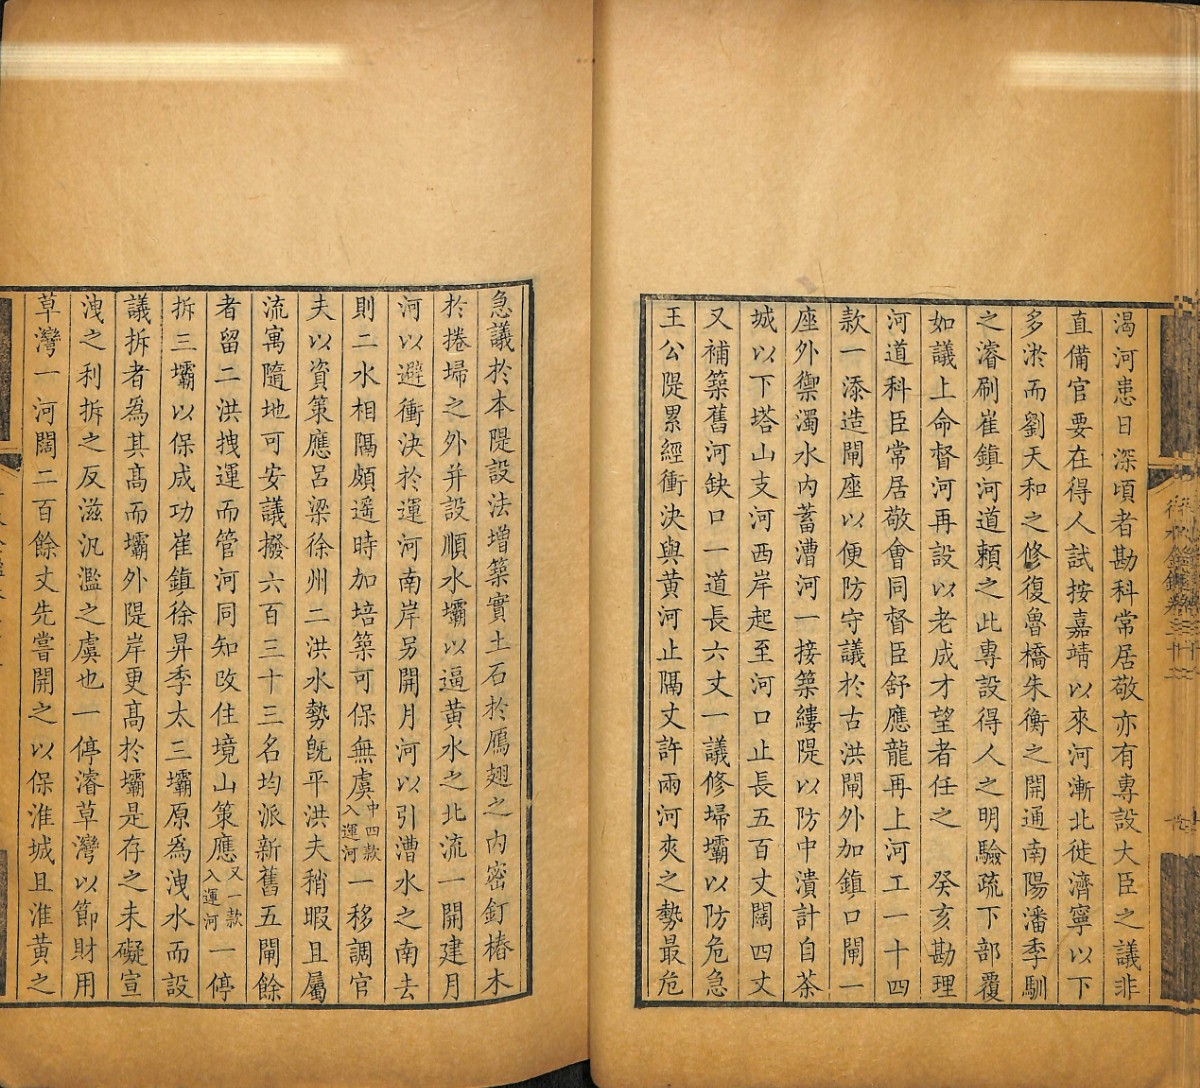 渴河患日深頃者勘科常居敬亦有專設大臣之議非
直備官要在得人試按嘉靖以來河漸北徙濟寧以下
多淤而劉天和之修復魯橋朱衡之開通南陽潘季馴
之濬刷崔鎮河道賴之此專設得人之明驗疏下部覆
如議上命督河再設以老成才望者任之 癸亥勘理
河道科臣常居敬會同督臣舒應龍再上河工一十四
款一添造閘座以便防守議於古洪閘外加鎮口閘一
座外禦濁水內蓄漕河一接築縷隄以防中潰計自茶
城以下塔山支河西岸起至河口止長五百丈闊四丈
又補築舊河缺口一道長六丈一議修埽壩以防危急
王公隄累經衝決與黃河止隔丈許兩河夾之勢最危
急議於本隄設法增築實土石於鴈翅之內密釘樁木
於捲埽之外并設順水壩以逼黃水之北流一開建月
河以避衝決於運河南岸另開月河以引漕水之南去
則二水相隔頗遥時加培築可保無虞中四款入運河一移調官
夫以資策應呂梁徐州二洪水勢旣平洪夫稍暇且屬
流寓隨地可安議撥六百三十三名均派新舊五閘餘
者留二洪拽運而管河同知改住境山策應又一款入運河一停
拆三壩以保成功崔鎮徐昇季太三壩原為洩水而設
議拆者為其髙而壩外隄岸更髙於壩是存之未礙宣
洩之利拆之反滋汎濫之虞也一停濬草灣以節財用
草灣一河闊二百餘丈先嘗開之以保淮城且淮黃之